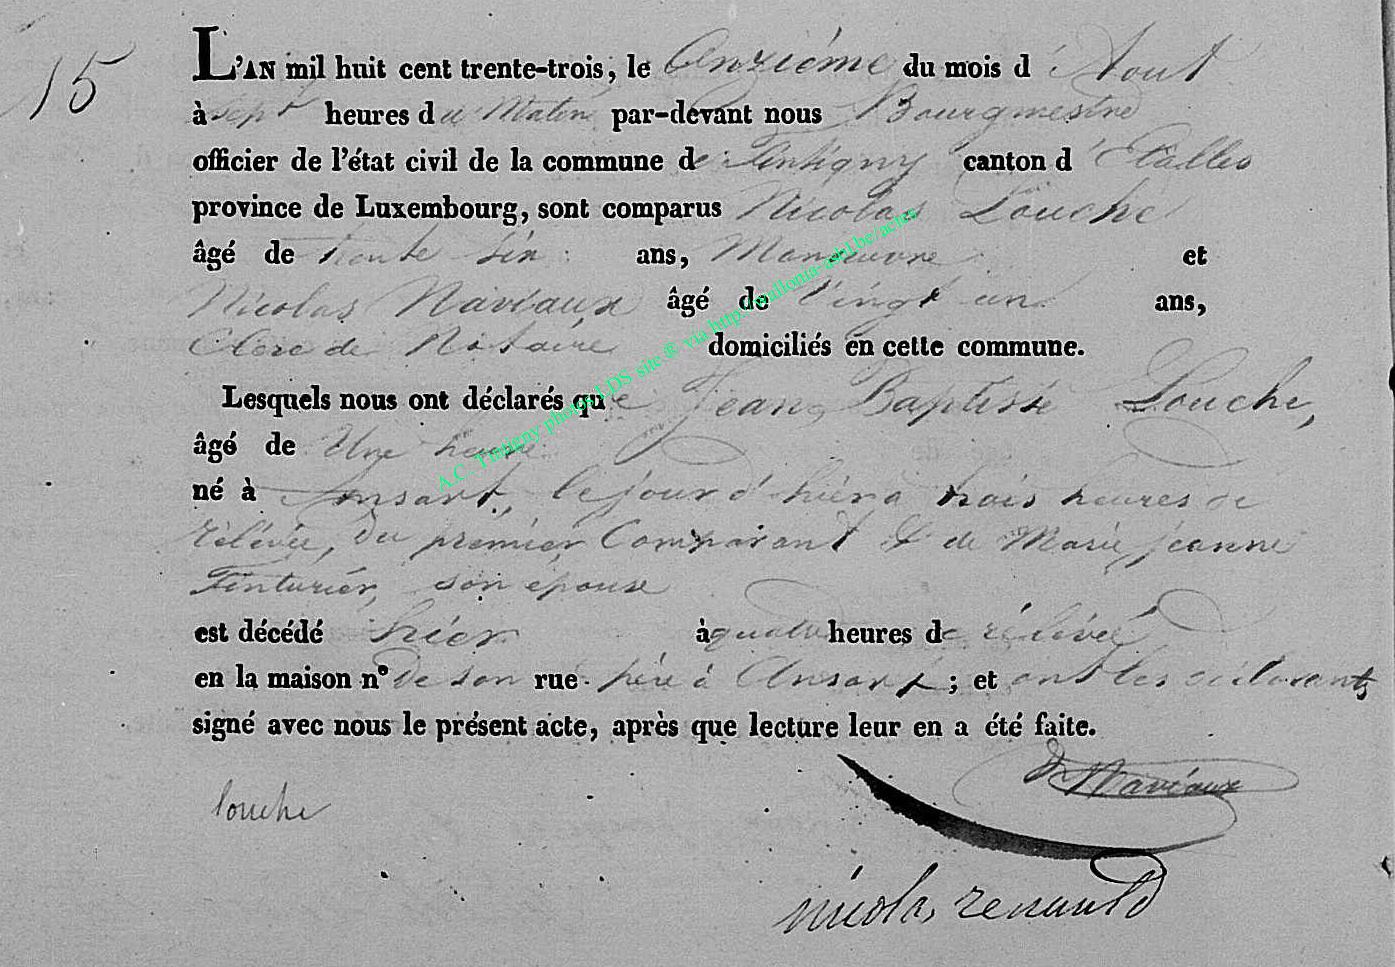 15
L'AN mil huit cent trente-trois, le Onziéme du mois d'Aout
à sept heures du Matin par-devant nous Bourgmestre
officier de l'état civil de la commune de Tintigny canton d'Etalles
province de Luxembourg, sont comparus Nicolas Louche
âgé de trente six ans, Manœuvre et
Nicolas Naviaux âgé de vingt un ans,
Clerc de Notaire domiciliés en cette commune.
Lesquels nous ont déclarés que Jean Baptiste Louche,
âgé de Une heure
né à Ansart, le jour d'hier a trois heures de
rélévée, du prémiér Comparant & de Marie jeanne
Tinturiér, son epouse
est décédé hiér à quatre heures de rélévée
en la maison n° De son rue père à Ansart ; et ont les déclarants
signé avec nous le présent acte, après que lecture leur en a été faite.
N Naviaux
louche
nicolas renauld
A.C. Tintigny photos LDS site ® via http://wallonia-asbl.be/actes